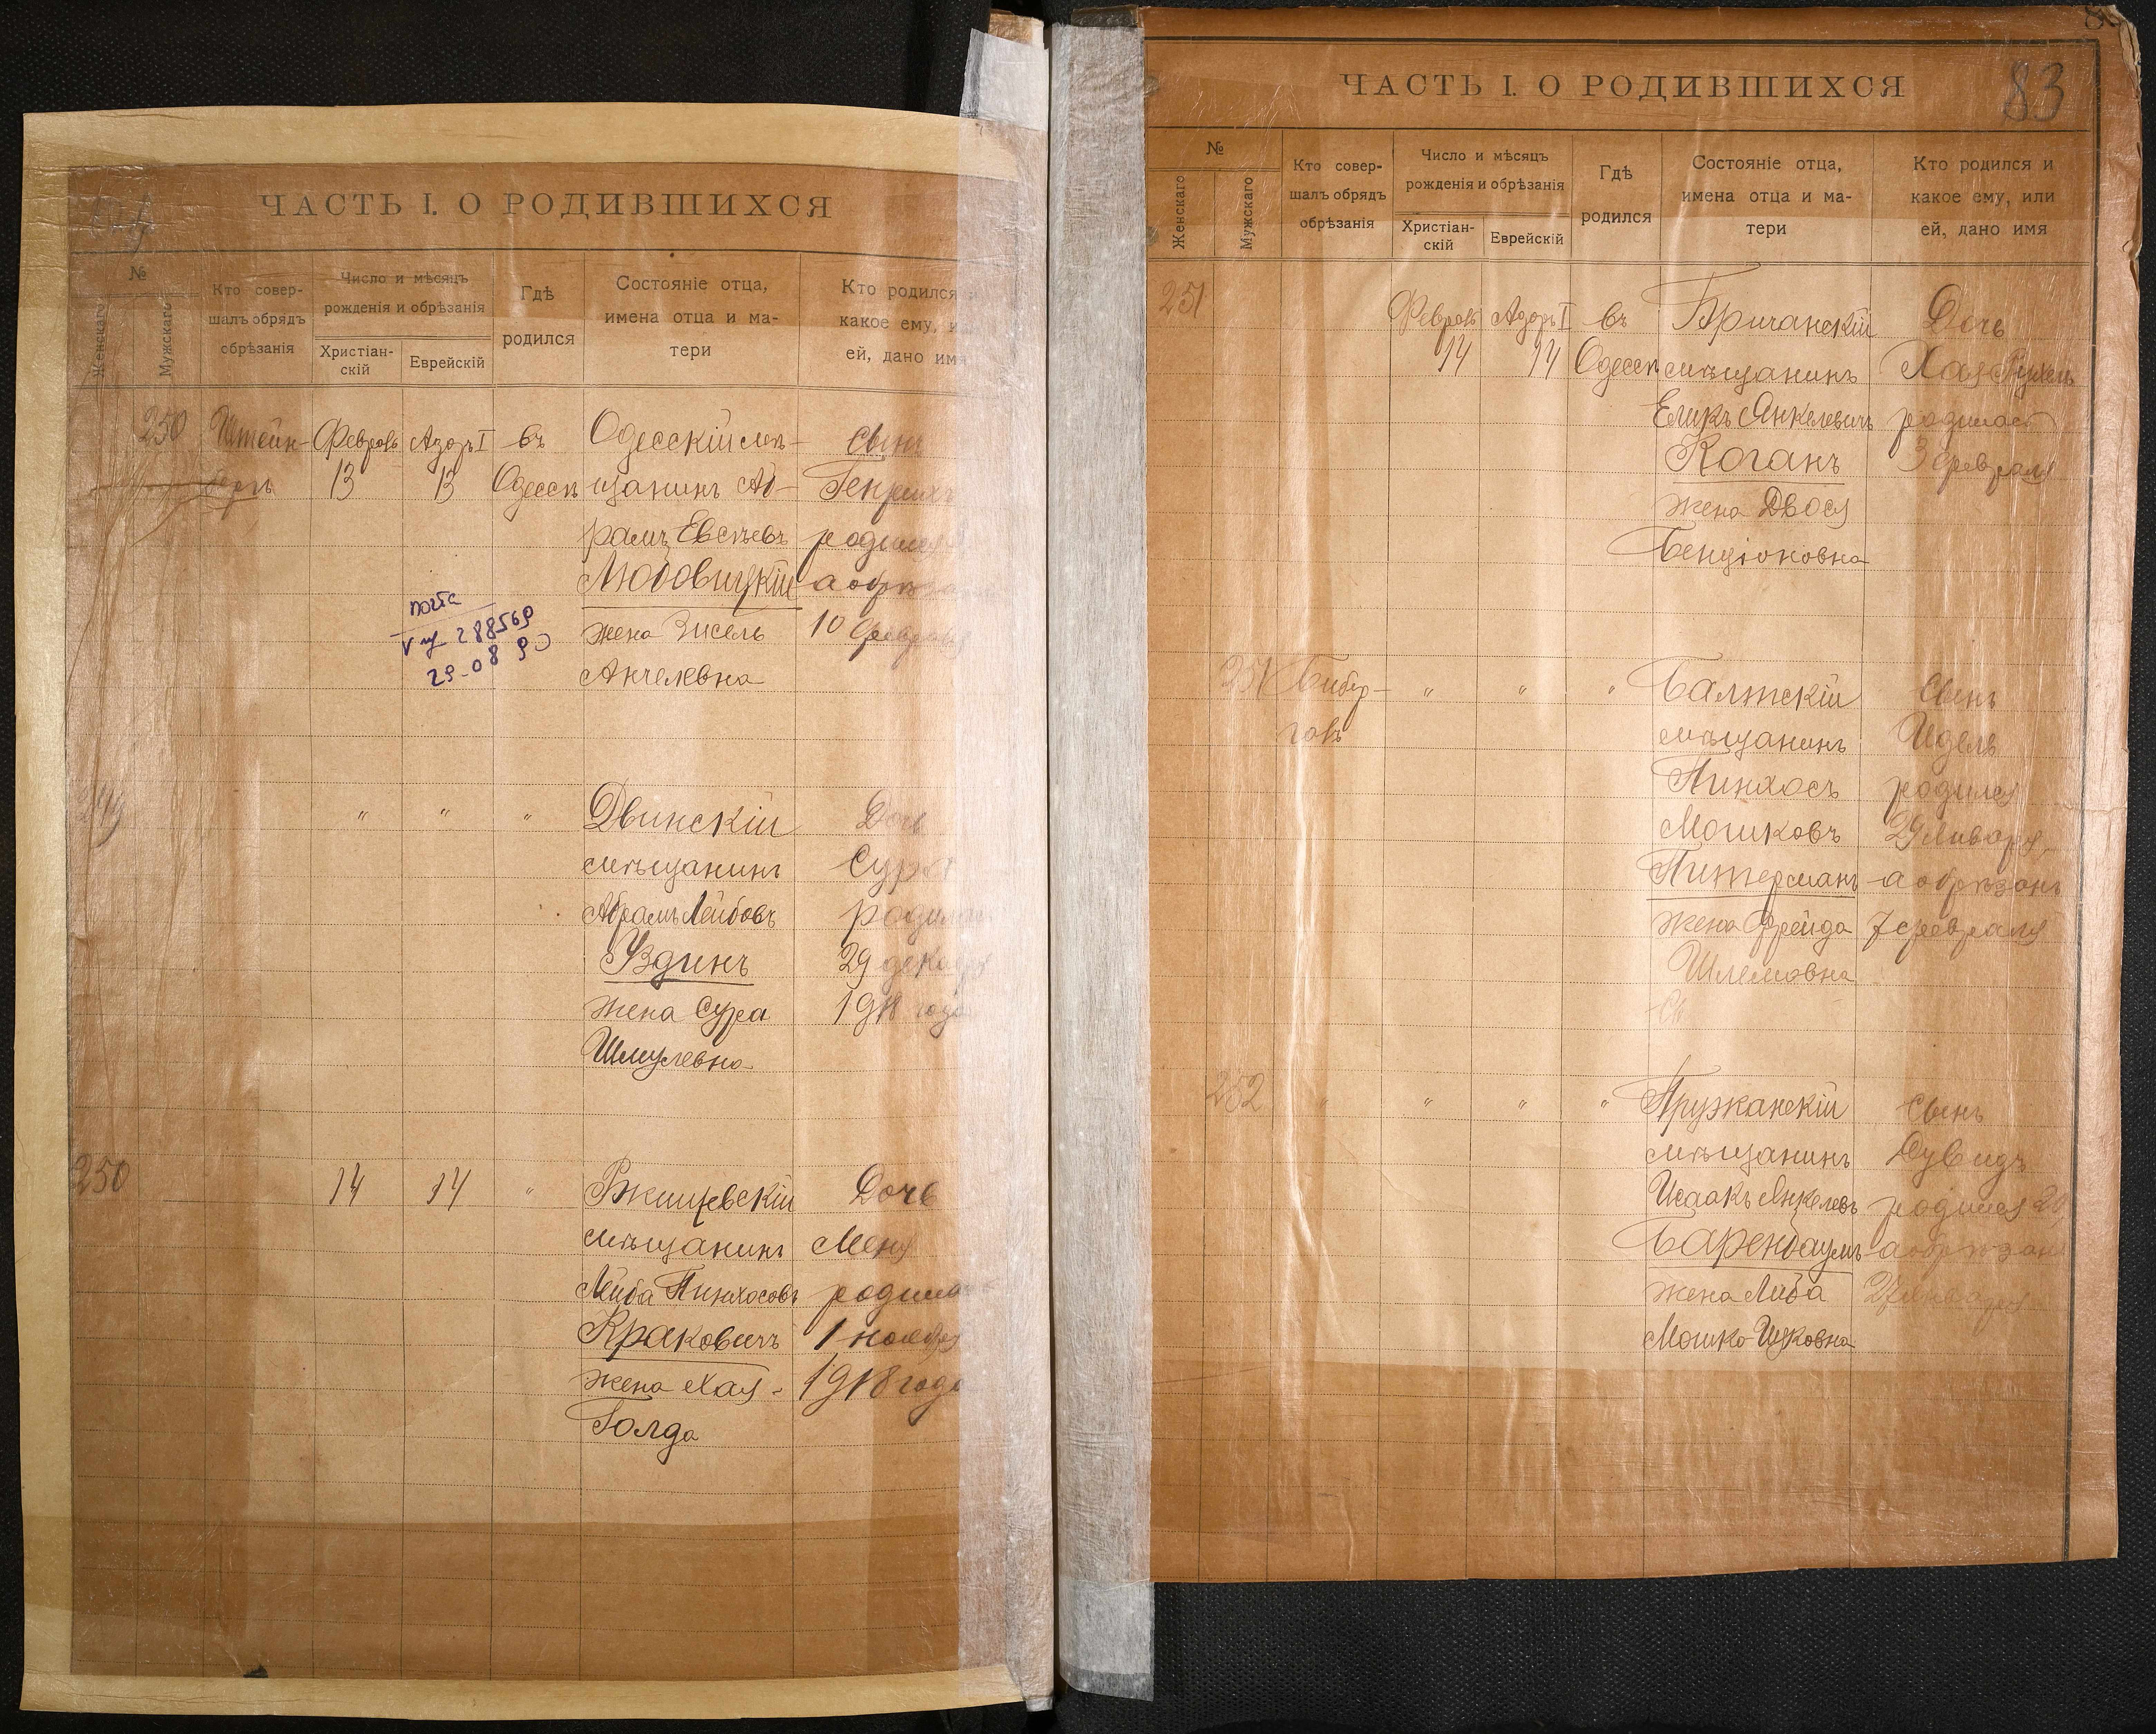 ЧАСТЬ I. О РОДИВШИХСЯ
№
Женскаго
Мужскаго
Кто совер-
шалъ обрядъ
обрѣзанія
Число и мѣсяцъ
рожденія и обрѣзанія
Христіан-
скій
Еврейскій
Гдѣ
родился
Состояніе отца,
имена отца и ма-
тери
Кто родился
какое ему,
ей, дано имя
250 Штейн- Февраль Адоръ I въ Одесскій мѣ- Сынъ
бергъ 13 13 Одессѣ щанинъ Аб- Генрихъ
рамъ Евсѣевъ родился
Любовицкій а обрѣзанъ
жена Зисель 10 февраля
Анчелевна
почта
V 288569
29-08 90
249 " " " Двинскій Дочь
мѣщанинъ Сура
Абрамъ Лейбовъ родилась
Уздинъ 29 декабря
жена Сура 1918 года
Шмулевна
250 14 14 " Ржищевскій Дочь
мѣщанинъ Меня
Лейба Пинхосовъ родилась
Краковичъ 1 ноября
жена Хая- 1918 года
Голда
83
ЧАСТЬ I. О РОДИВШИХСЯ
№
Женскаго
Мужскаго
Кто совер-
шалъ обрядъ
обрѣзанія
Число и мѣсяцъ
рожденія и обрѣзанія
Христіан-
скій
Еврейскій
Гдѣ
родился
Состояніе отца,
имена отца и ма-
тери
Кто родился и
какое ему, или
ей, дано имя
251 Февраль Адоръ I въ Бричанскій Дочь
14 14 Одессѣ мѣщанинъ Хая Рухель
Еликъ Янкелевичъ родилась
Коганъ 3 февраля
жена Двося
Бенціоновна
251 Бибер- " " " Балтскій Сынъ
галь мѣщанинъ Идель
Пинхосъ родился
Мошковъ 29 Января,
Питерманъ а обрѣзанъ
жена Фрейда 7 февраля
Шлемовна
252 " " " " Пружанскій Сынъ
мѣщанинъ Дувидъ
Исаакъ Янкелевъ родился 20,
Баренбаумъ а обрѣзанъ
жена Либа 27 Января
Мошко-Ицковна